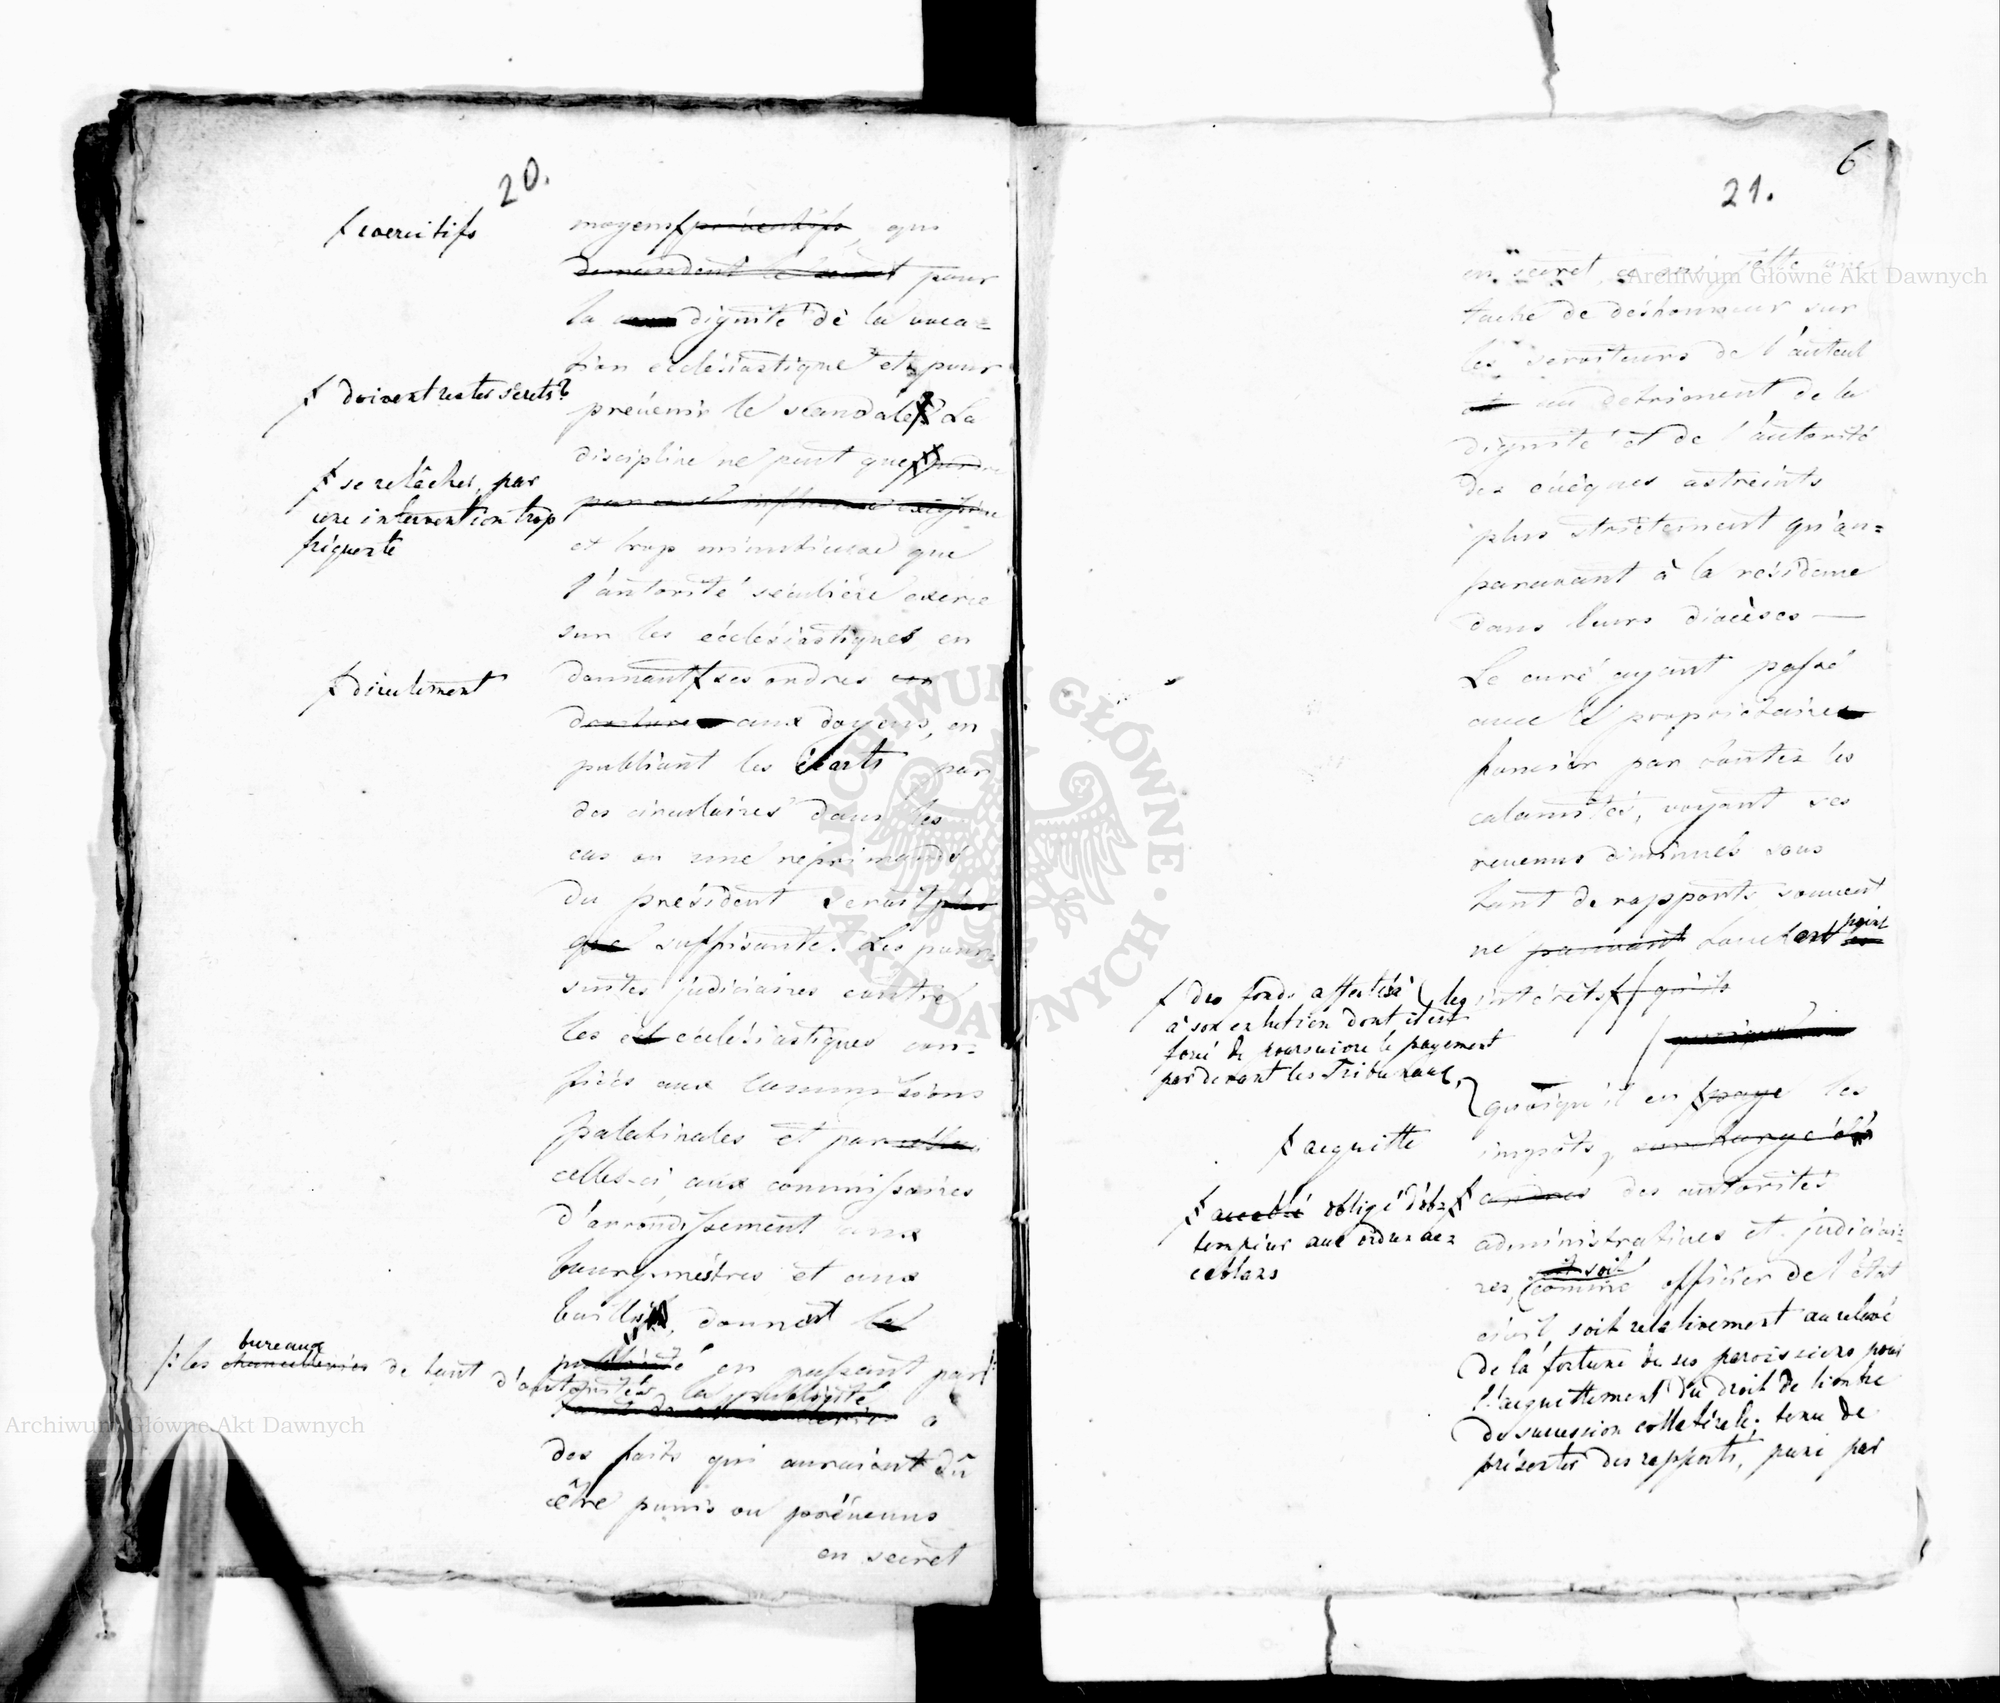 20.
moyens ƒ préventifs, qui
ƒ coercitifs
demandent le secret pour
la dignité de la voca=
tion ecclésiastique et pour
ƒ doivent rester secrets?
prévenir le scandale La
discipline ne peut que ƒ perdre
ƒ se relâcher, par
une intervention trop
friquente
par une influence excessive
et trop minutieuse que
l'autorité séculière exerce
sur les ecclésiastiques en
donnant ƒ ses ordres en
ƒ directement
droiture aux doyens, en
publiant les écarts par
des circulaires dans les
cas ou une réprimande
du président serait plus
que suffisante. Les pour=
suites judiciaires contre
les ecclésiastiques con=
fiées aux Commissions
palatinales et par
celles-ci aux commissaires
d'arrondissement aux
bourgmestres et aux
baillis, donnent la
publicité en passant par
/: les chancelleries bureaux de tant d'autorités, la publicité
à
des faits qui auraient dû
être punis ou prévenus
en secret
6
21.
en secret, ce qui jette une
tache de deshonneur sur
les serviteurs de l'autel
au detriment de la
dignité et de l'autorité
des évêques astreints
plus strictement qu'au=
paravant à la residence
dans leurs diocèses —
Le curé ayant passé
avec le propriétaire
foncier par toutes les
calamités, voyant ses
revenus diminués sous
tant de rapports, souvent
ne pouvant touchant point
les intérêts ƒ qu'ils
ƒ des fonds affectés
à son entretien dont il est
forcé de poursuivre le payement
par devant les Tribunaux,
quoiqu'il en ƒ paye les
ƒ acquitte
impôts, surchargé des
ordres des autorités
ƒ accablé obligé d'ob=
tempérer aux ordres ac=
cablans
administratives et judiciai=
res, comme et soit officier de l'état
civil, soit relativement au relevé
de la fortune de ses paroissiens pour
l'acquittement du droit de timbre
de succession collatérale; tenu de
présenter des rapports, puni par
Archiwum Główne Akt Dawnych
Archiwum Główne Akt Dawnych
ARCHIWUM GŁÓWNE · AKT DAWNYCH ·